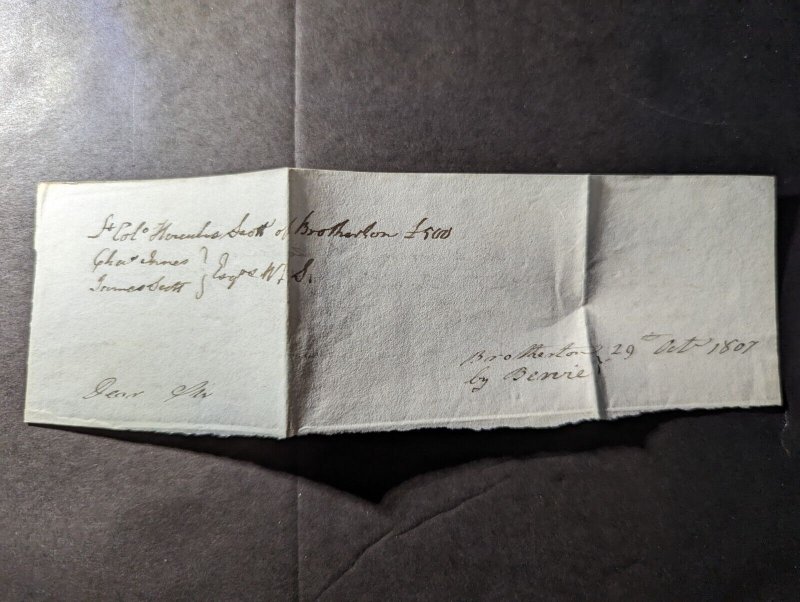 Lt Colo Hercules Scott of Brotherton £500
Chas Innes } Esqrs W. S.
James Scott
Brotherton 29th Octr 1807
by Bervie
Dear Sir